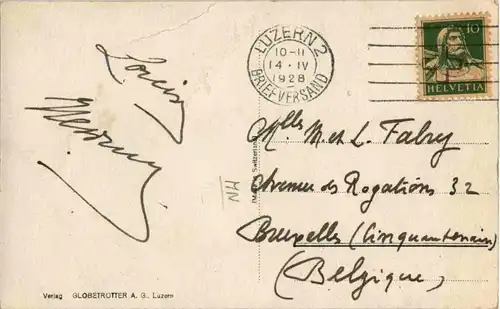 LUZERN 2
10-11
14·IV
1928
BRIEFVERSAND
10
HELVETIA
Louis
Mlles M. et L. Fabry
Avenue des Rogations 32
Bruxelles (Cinquantenaire)
(Belgique)
MN
Switzerland
Verlag GLOBETROTTER A. G., Luzern